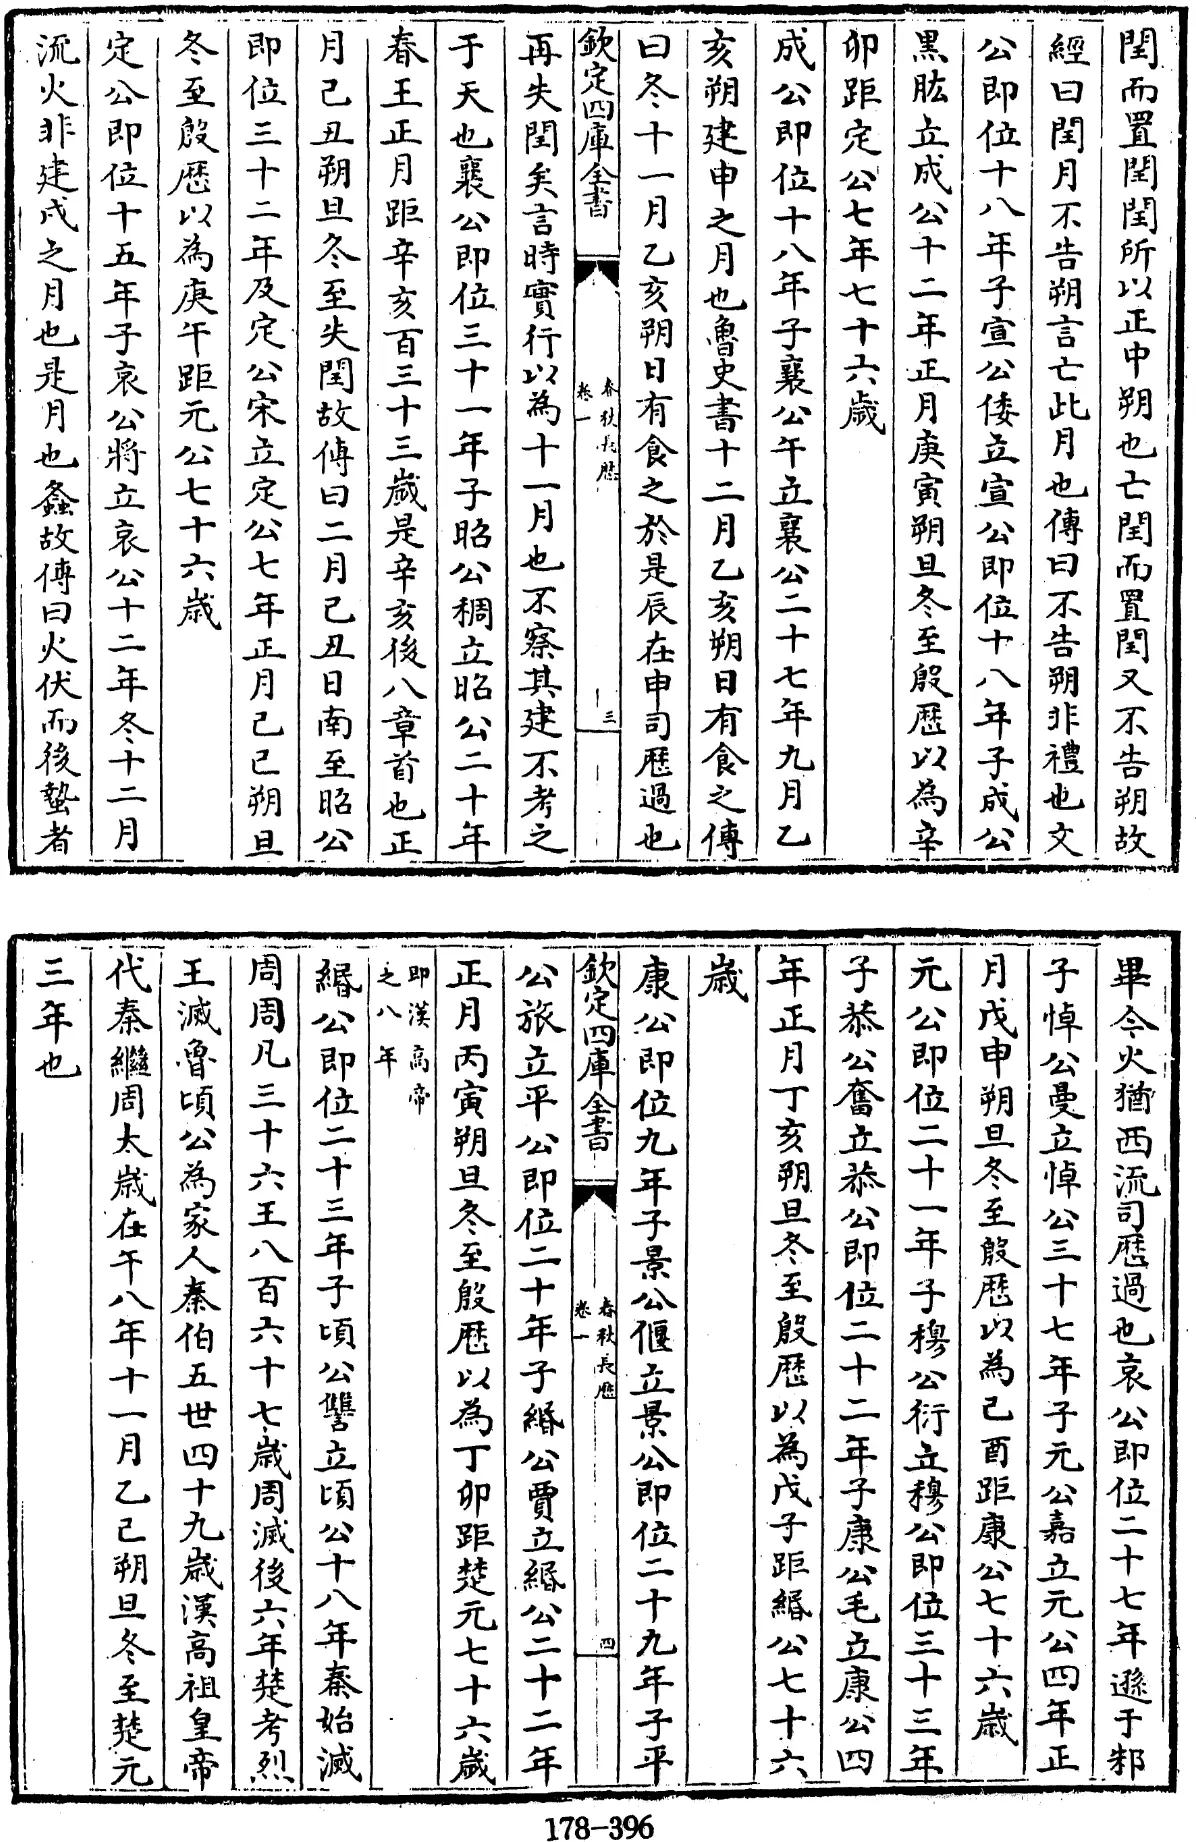 閏而置閏閏所以正中朔也亡閏而置閏又不告朔故
經曰閏月不告朔言亡此月也傳曰不告朔非禮也文
公即位十八年子宣公倭立宣公即位十八年子成公
黑肱立成公十二年正月庚寅朔旦冬至殷厯以為辛
卯距定公七年七十六歲
成公即位十八年子襄公午立襄公二十七年九月乙
亥朔建申之月也魯史書十二月乙亥朔日有食之傳
曰冬十一月乙亥朔日有食之於是辰在申司厯過也
欽定四庫全書
春秋長厯
卷一
三
再失閏矣言時實行以為十一月也不察其建不考之
于天也襄公即位三十一年子昭公稠立昭公二十年
春王正月距辛亥百三十三歲是辛亥後八章首也正
月己丑朔旦冬至失閏故傳曰二月己丑日南至昭公
即位三十二年及定公宋立定公七年正月己巳朔旦
冬至殷厯以為庚午距元公七十六歲
定公即位十五年子哀公將立哀公十二年冬十二月
流火非建戌之月也是月也螽故傳曰火伏而後蟄者
畢今火猶西流司厯過也哀公即位二十七年遜于邾
子悼公曼立悼公三十七年子元公嘉立元公四年正
月戊申朔旦冬至殷厯以為己酉距康公七十六歲
元公即位二十一年子穆公衍立穆公即位三十三年
子恭公奮立恭公即位二十二年子康公毛立康公四
年正月丁亥朔旦冬至殷厯以為戊子距緡公七十六
歲
康公即位九年子景公偃立景公即位二十九年子平
欽定四庫全書
春秋長厯
卷一
四
公旅立平公即位二十年子緡公賈立緡公二十二年
正月丙寅朔旦冬至殷厯以為丁卯距楚元七十六歲
即漢高帝
之八年
緡公即位二十三年子頃公讐立頃公十八年秦始滅
周周凡三十六王八百六十七歲周滅後六年楚考烈
王滅魯頃公為家人秦伯五世四十九歲漢高祖皇帝
代秦繼周太歲在午八年十一月乙巳朔旦冬至楚元
三年也
178-396